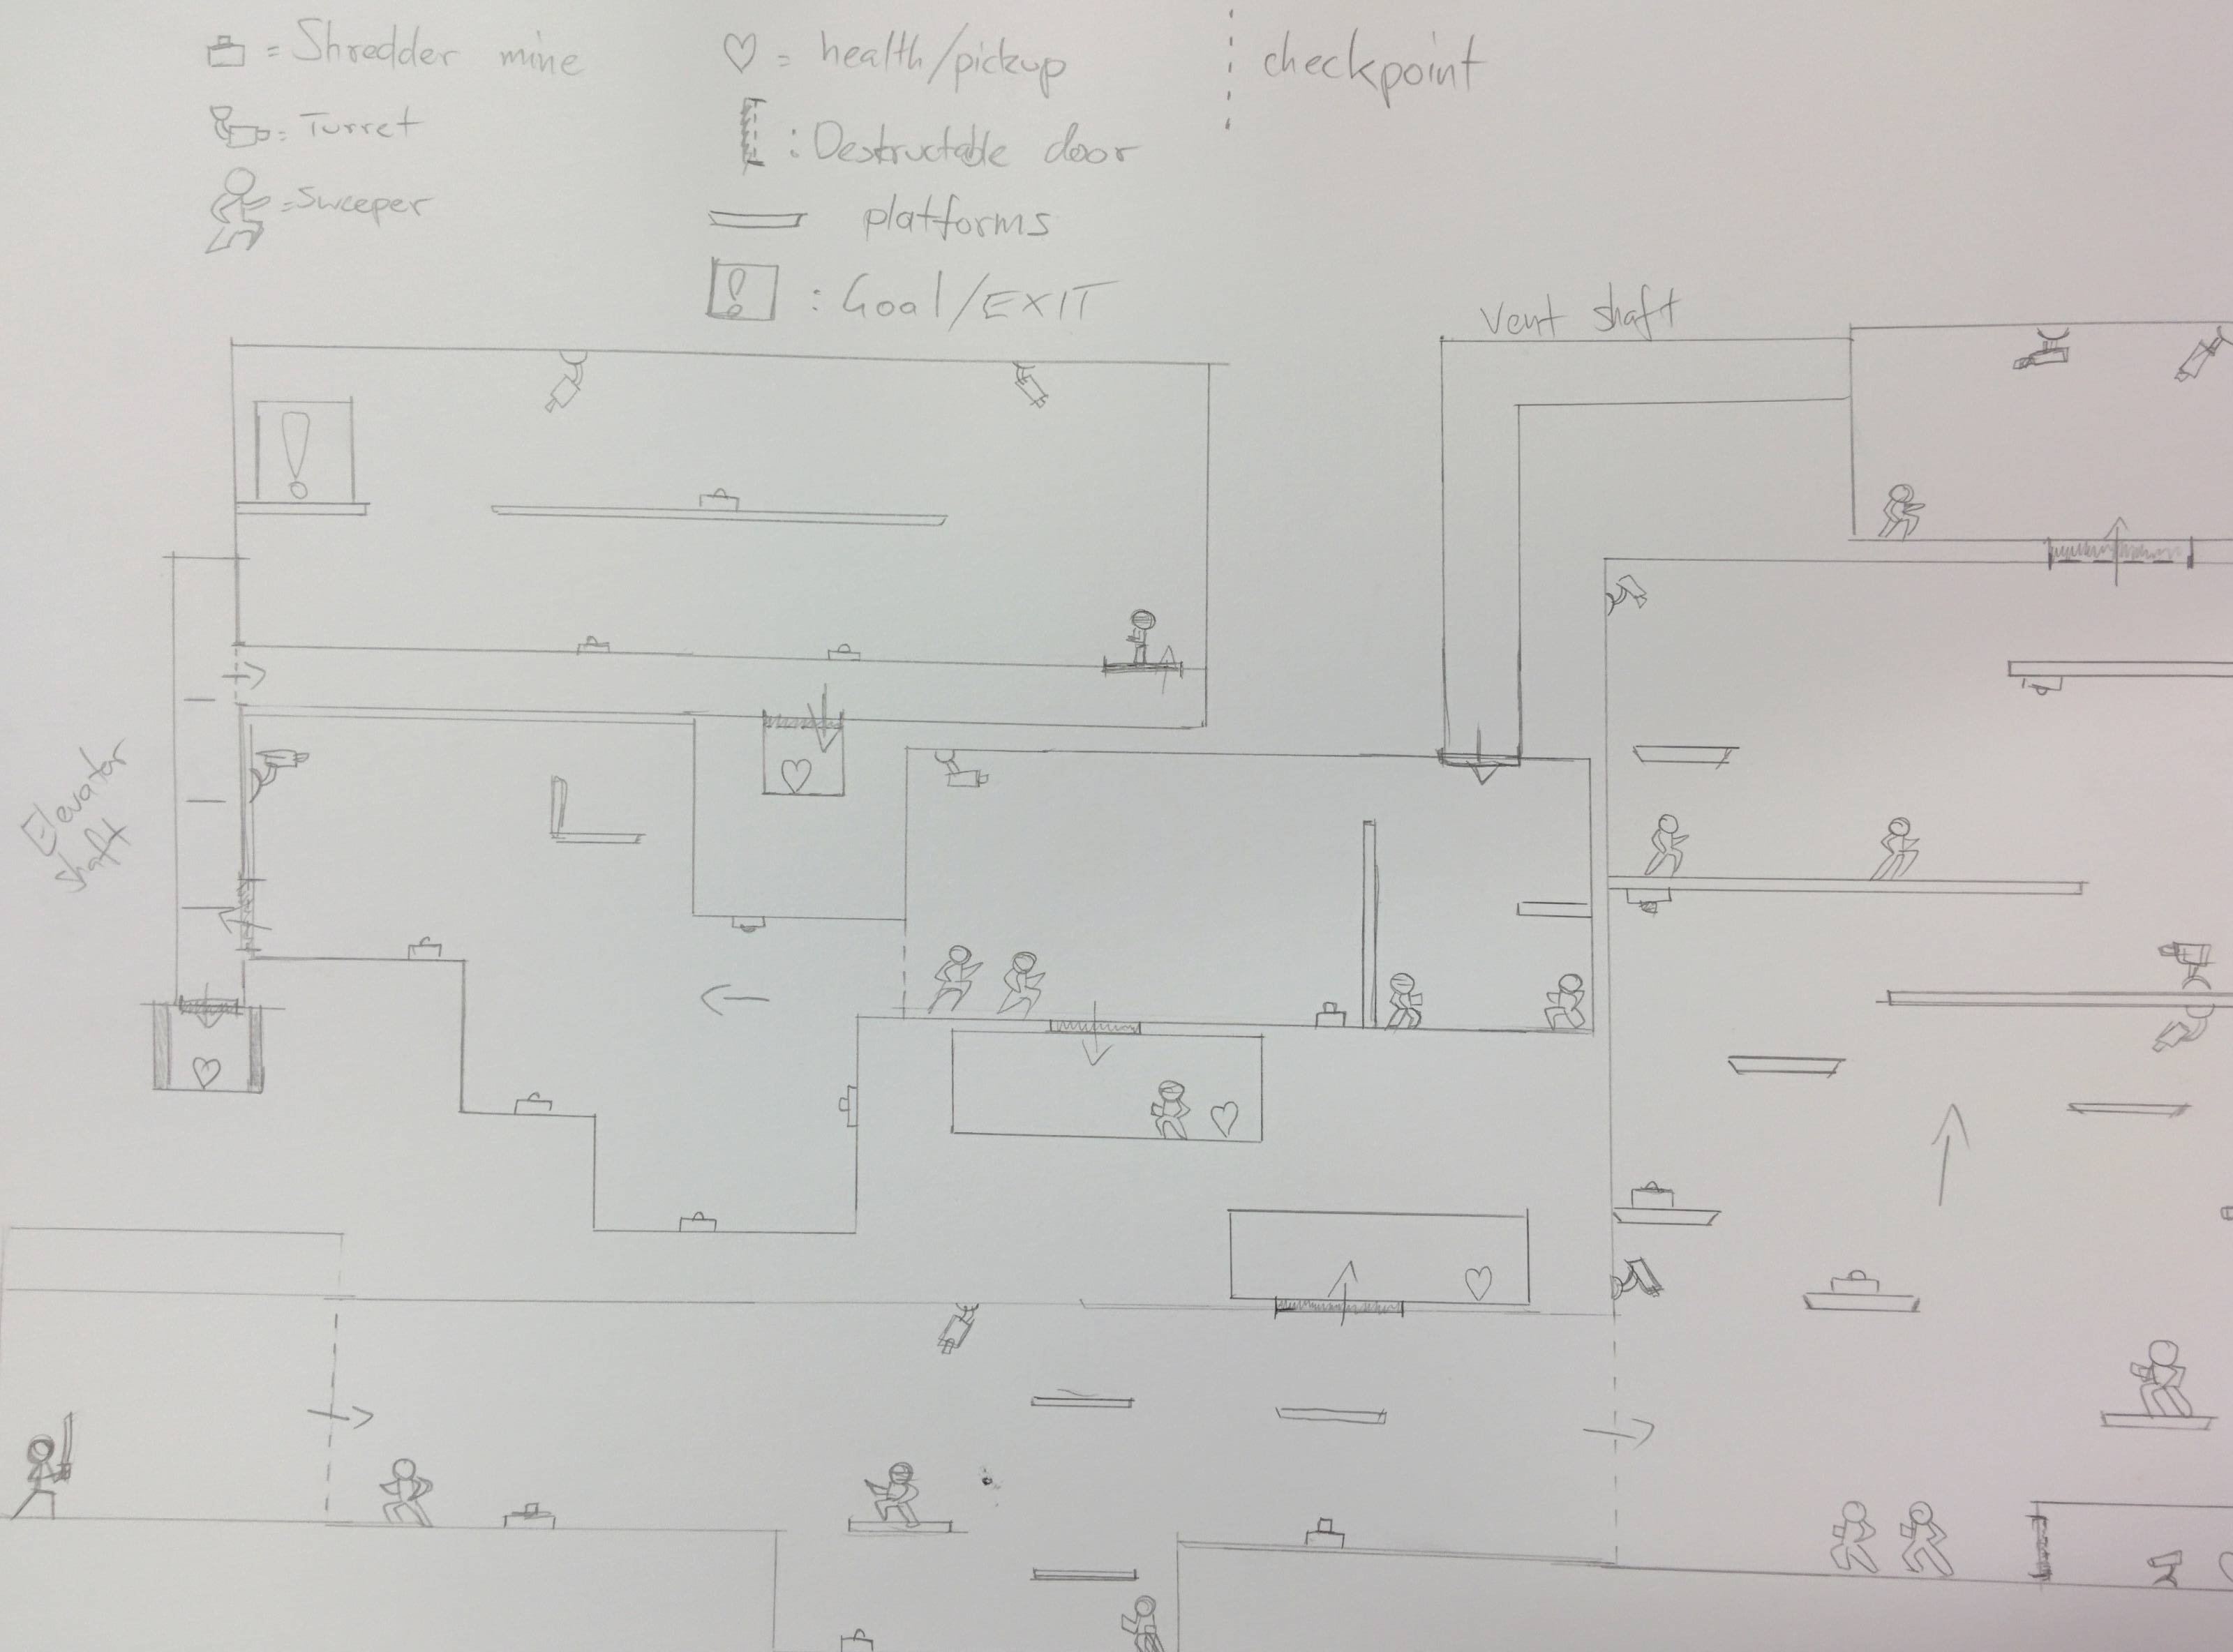 = Shredder mine
= Turret
= Sweeper
= health/pickup
: Destructable door
platforms
! : Goal/EXIT
checkpoint
Vent shaft
!
Elevator
shaft